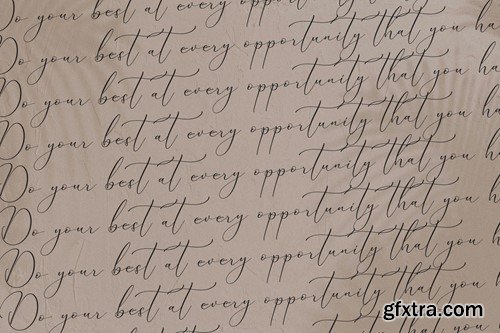 Do your best at
Do your best at every opportunity that you ha
Do your best at every opportunity that you ha
Do your best at every opportunity that you h
Do your best at every opportunity that you ha
Do your best at every opportunity that you h
Do your best at every opportunity that you h
Do your best at every opportunity that you h
best at every opportunity that you
gfxtra.com